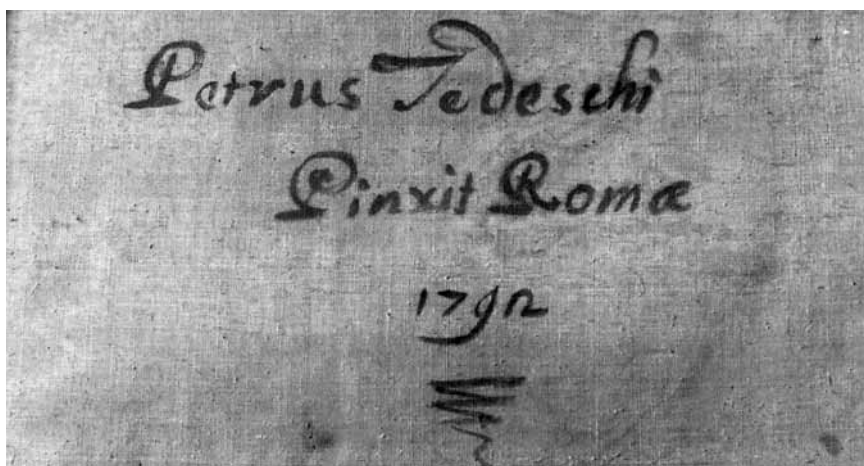 Petrus Tedeschi
Pinxit Romæ
1792